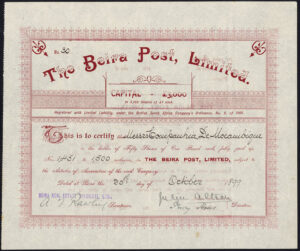 No. 30
The Beira Post, Limited.
CAPITAL - £5,000
IN 5,000 SHARES OF £1 EACH.
Registered with Limited Liability, under the British South Africa Company's Ordinance, No. 2, of 1895.
This is to certify that Messrs Companhia De Mocambique
is the holder of Fifty Shares of One Pound each fully paid up
Nos. 1451 to 1500 inclusive, in THE BEIRA POST, LIMITED, subject to
the Articles of Association of the said Company.
Dated at Beira the 20th day of October 1897
Director.